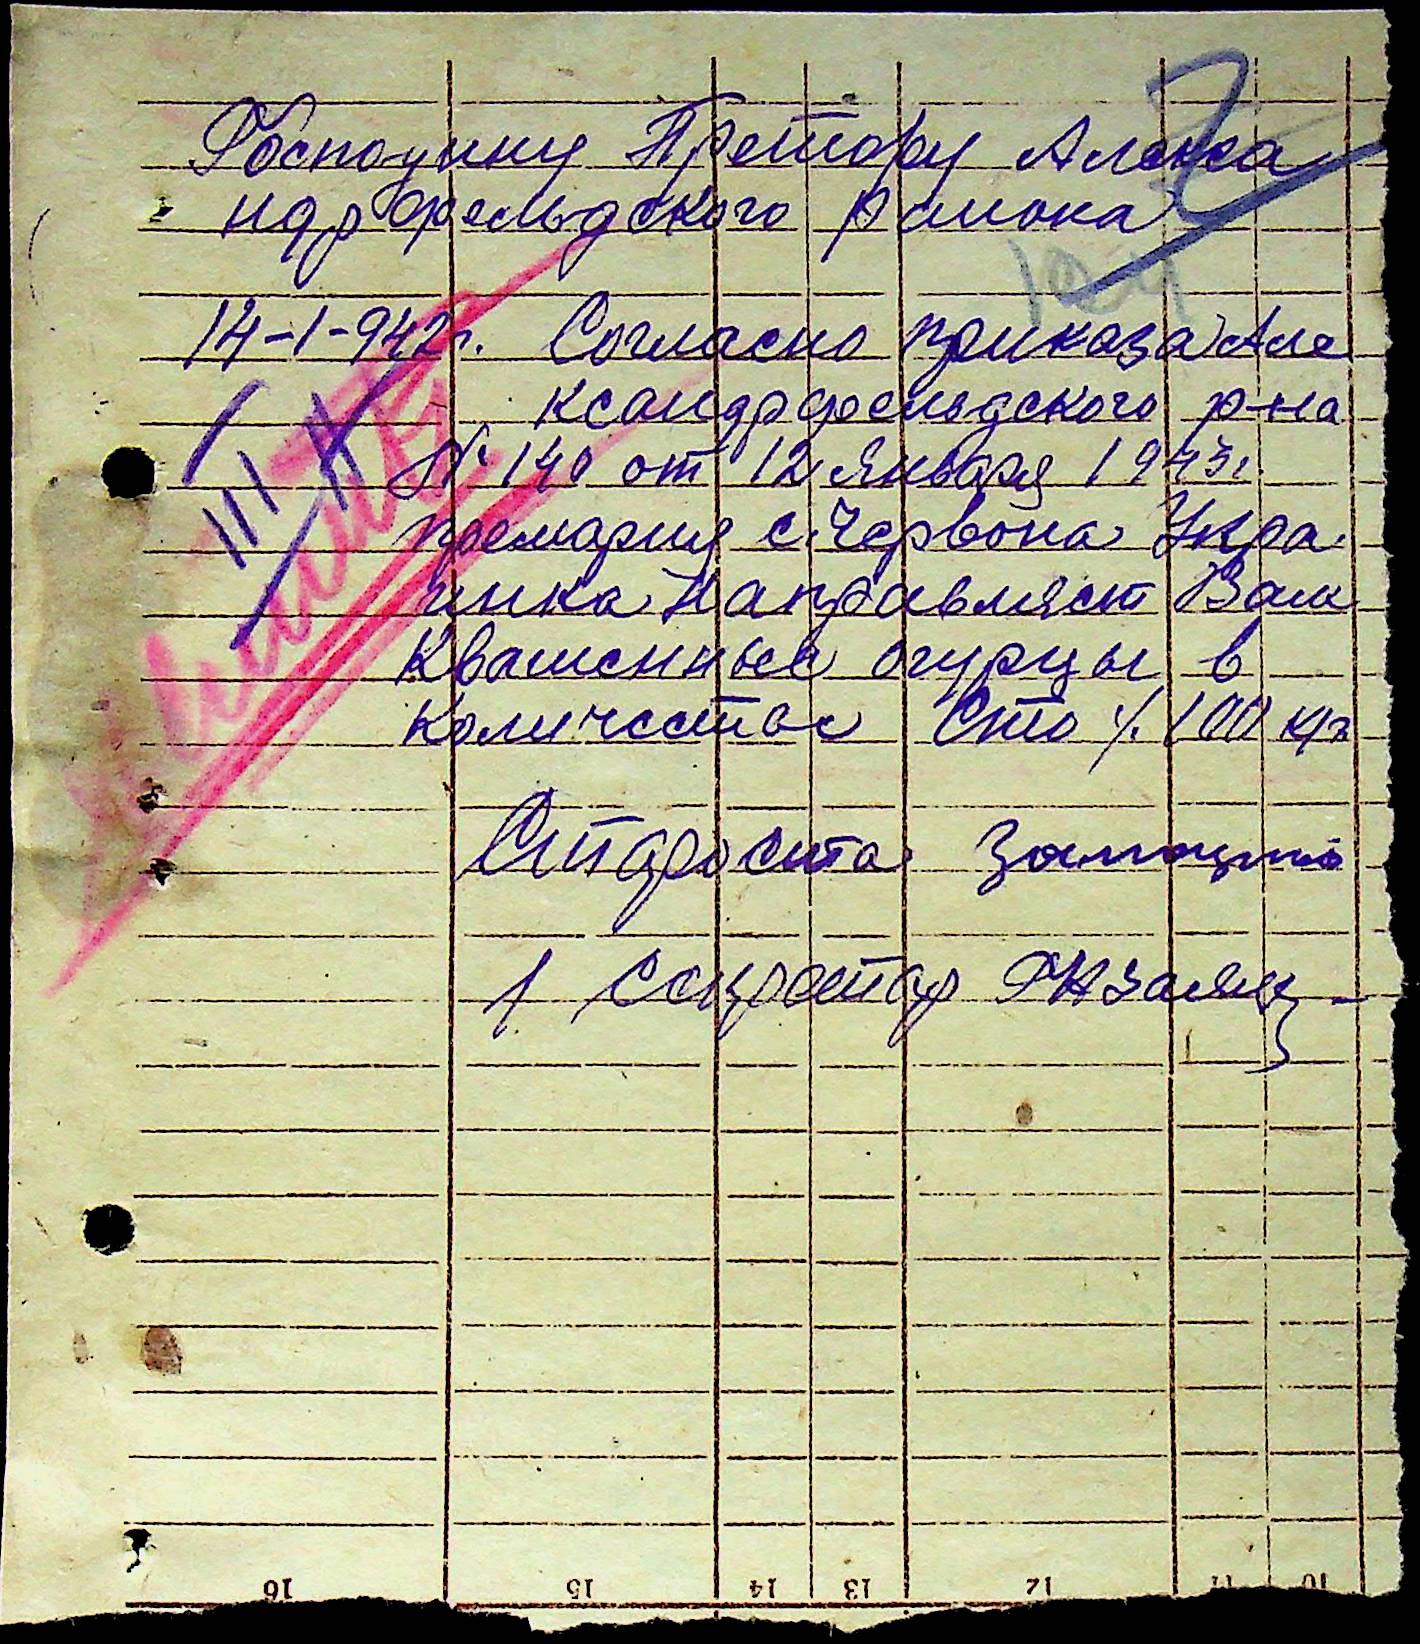 Господину Претору Алекса
ндрфельдского раиона
104
14-1-942г. Согласно приказа Але
ксандрфельдского р-на
№ 140 от 12 января 1943г.
премария с. Червона Укра
инка Направляет Вам
Квашенные огурцы в
количестве Сто /. 100 кгр
Староста
Секретар
16 15 14 13 12 11 10